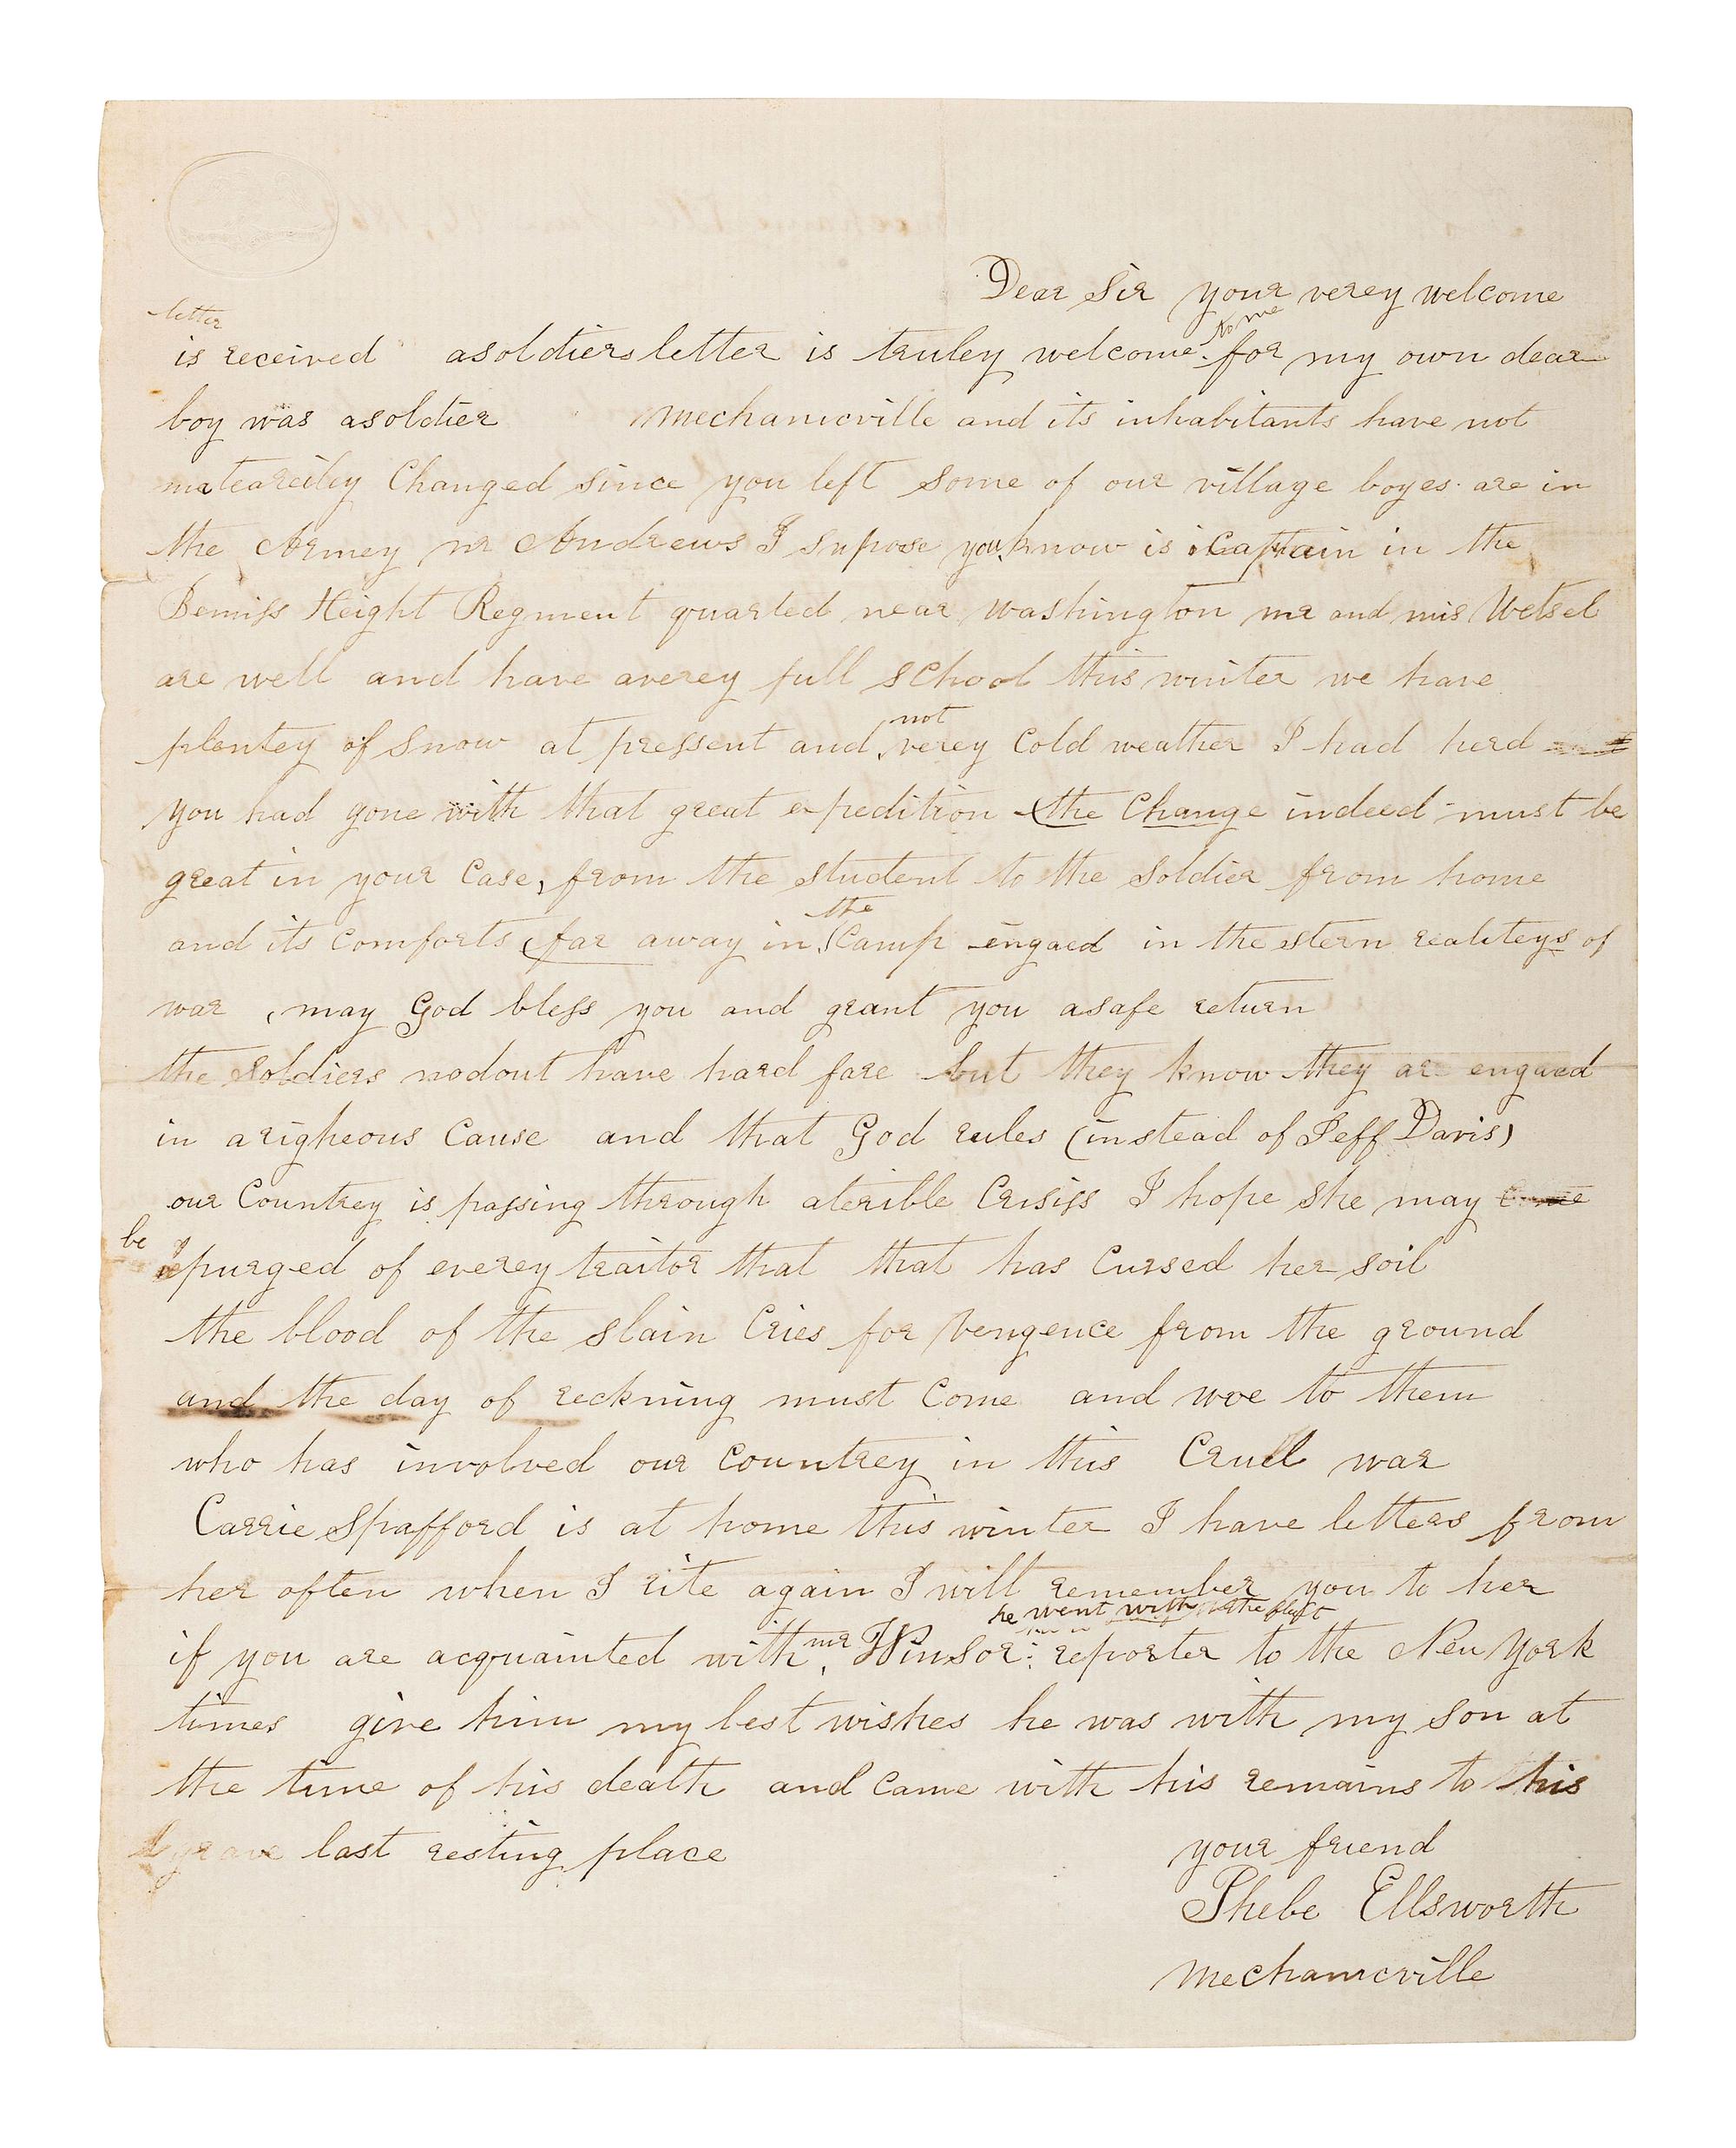 Dear Sir your verey welcome
letter
is received asoldiers letter is truley welcome to me for my own dear
boy was asoldier Mechanicville and its inhabitants have not
matearciley Changed since you left some of our village boyes are in
the Armey mr Andrews I supose you know is Captain in the
Bemiss Height Regment quarted near washington mr and mis Wetsel
are well and have averey full school this winter we have
plentey of snow at pressent and not verey Cold weather I had herd
you had gone with that great expedition the Change indeed must be
great in your Case, from the student to the soldier from home
and its comforts (far away in the Camp engaed in the stern realiteys of
war , may God bless you and grant you asafe return
the soldiers nodout have hard fare but they know they are engaed
in arigheous Cause and that God rules (instead of Jeff Davis)
our Countrey is passing through aterible Crisiss I hope she may
be purged of everey traitor that that has Cursed her soil
the blood of the slain Cries for vengence from the ground
and the day of reckning must Come and woe to them
who has involved our countrey in this Cruell war
Carrie Spafford is at home this winter I have letters from
her often when I rite again I will remember you to her
he went with the fleft
if you are acquainted with mr Winsor: reporter to the New York
times give him my best wishes he was with my son at
the time of his death and Came with his remains to his
grave last resting place
your friend
Phebe Ellsworth
Mechanicville